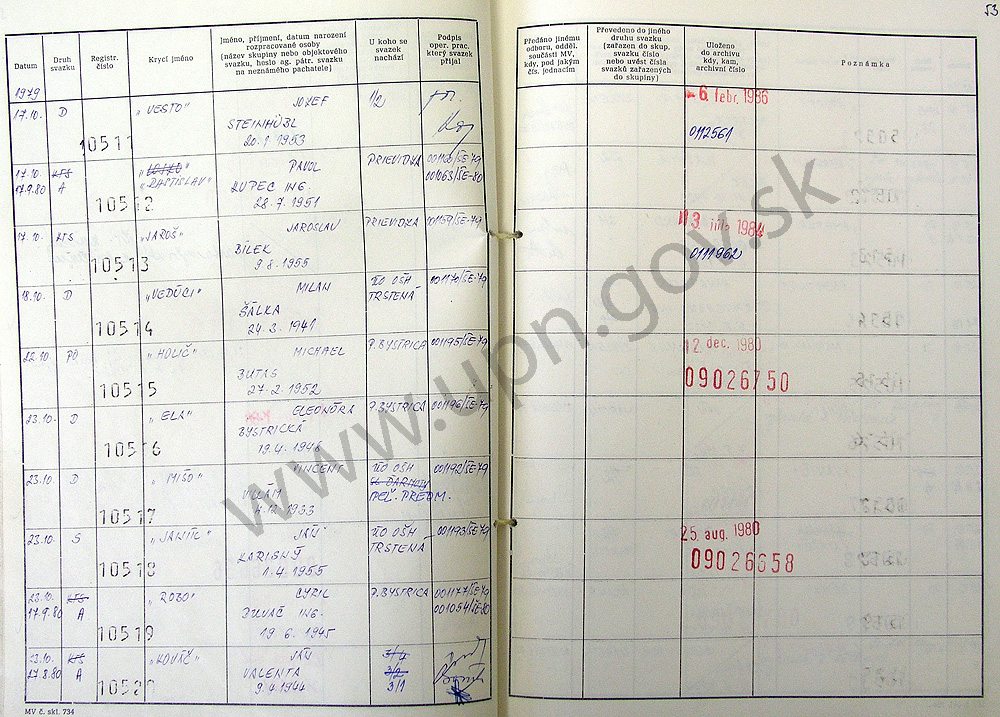 53
Datum
Druh svazku
Registr. číslo
Krycí jméno
Jméno, příjmení, datum narození
rozpracované osoby
(název skupiny nebo objektového
svazku, heslo ag. pátr. svazku
na neznámého pachatele)
U koho se
svazek
nachází
Podpis
oper. prac.
který svazek
přijal
Předáno jinému
odboru, odděl.
součásti MV,
kdy, pod jakým
čís. jednacím
Převedeno do jiného
druhu svazku
(zařazen do skup.
svazku číslo
nebo uvést čísla
svazků zařazených
do skupiny)
Uloženo
do archivu
kdy, kam,
archivní číslo
Poznámka
1979
17.10. D 10511 „VESTO" JOZEF 1/2
STEINHÜBL
20.1 1953
6. febr. 1986
0112561
17.10. KTS „RASTISLAV" PAVOL PRIEVIDZA 001160/ŠE-79
17.9.80 A 10512 KUPEC ING. 001063/ŠE-80
28.7.1951
17.10. KTS 10513 „JAROŠ" JAROSLAV PRIEVIDZA 001159/ŠE-79
BÍLEK
9.8.1955
13. 1984
0111962
18.10. D 10514 „VEDÚCI" MILAN ÚO OŠH 001170/ŠE-79
ŠÁLKA TRSTENÁ
24.3.1941
22.10. PO 10515 „HOLIČ" MICHAEL P. BYSTRICA 001195/ŠE-79
BUTAS
27.2.1952
12. dec. 1980
09026750
23.10. D 10516 „ELA" ELEONÓRA P. BYSTRICA 001196/ŠE-79
BYSTRICKÁ
19.4.1946
23.10. D 10517 „MIŠO" VINCENT ÚO OŠH 001192/ŠE-79
VILLÁM SL. ĎARMOTY
4.12.1933 PREDM.
23.10. S 10518 JÁN ÚO OŠH 001193/ŠE-79
TRSTENA
1.4.1955
25. aug. 1980
09026658
23.10. KTS 10519 „ROBO" CYRIL P. BYSTRICA 001177/ŠE-79
17.9.80 A ING. 001054/ŠE-80
19.6.1945
23.10. KTS 10520 „KOVÁČ" JÁN 3/4
27.8.80 A VALENTA 3/2
9.4.1944 3/1
MV č. skl. 734
www.upn.gov.sk